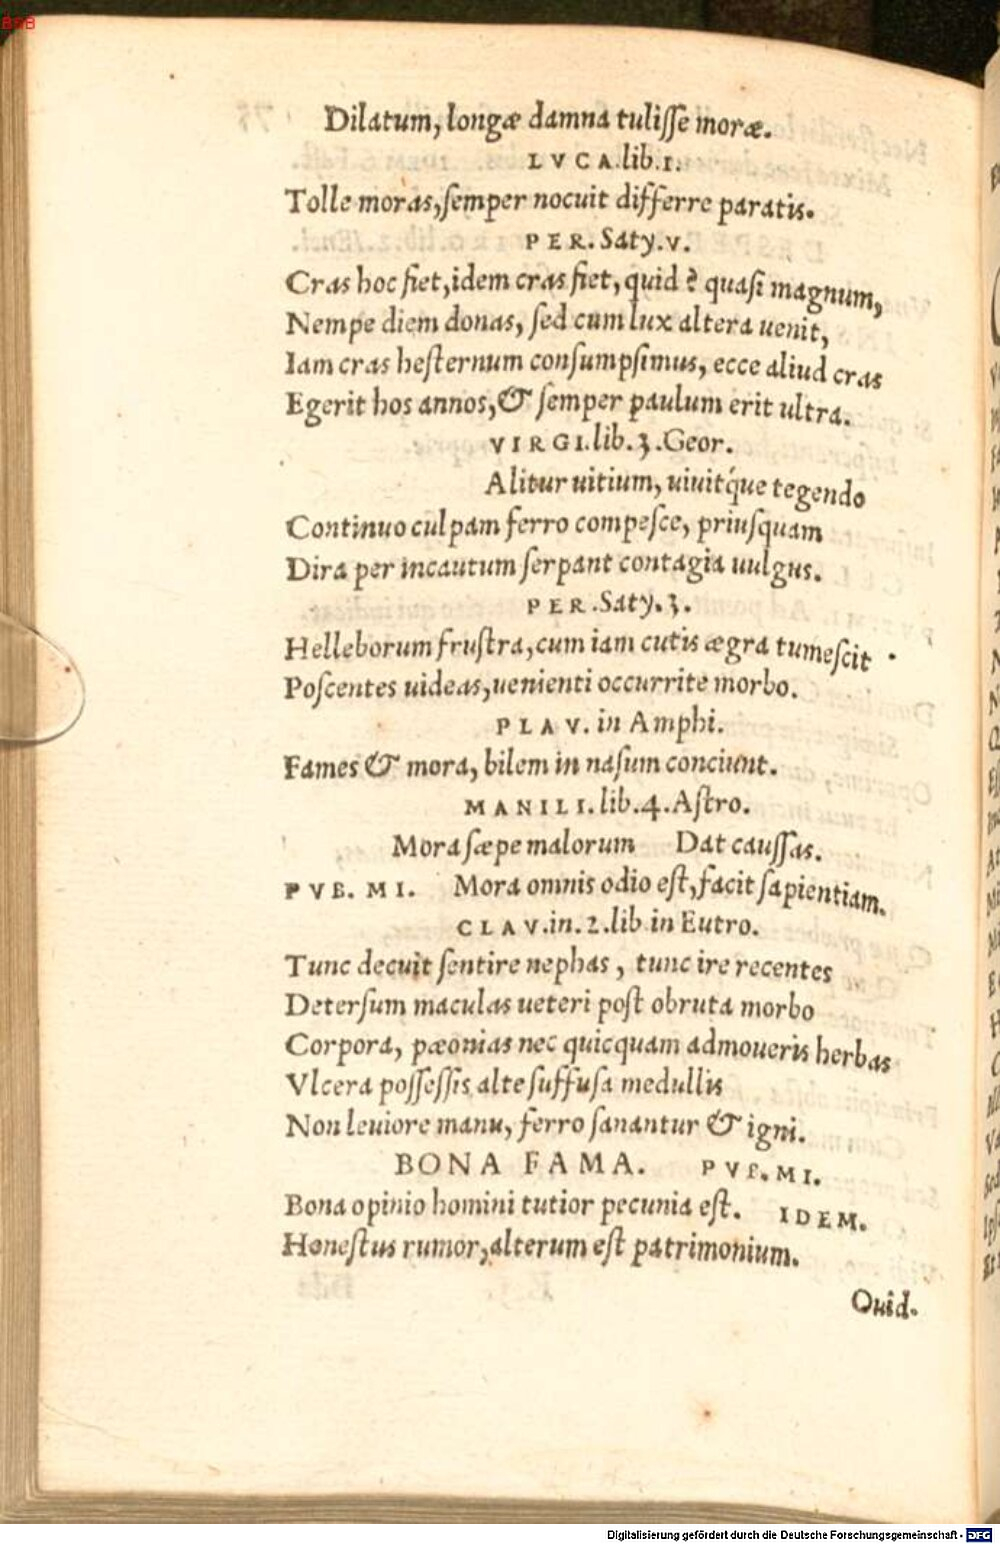 BSB
Dilatum, longæ damna tulisse moræ.
LVCA.lib.1.
Tolle moras, semper nocuit differre paratis.
PER. Saty.v.
Cras hoc fiet, idem cras fiet, quid ẽ quasi magnum,
Nempe diem donas, sed cum lux altera uenit,
Iam cras hesternum consumpsimus, ecce aliud cras
Egerit hos annos, & semper paulum erit ultra.
VIRGI.lib.3.Geor.
Alitur uitium, uiuitq́ue tegendo
Continuo culpam ferro compesce, priusquam
Dira per incautum serpant contagia uulgus.
PER.Saty.3.
Helleborum frustra, cum iam cutis ægra tumescit
Poscentes uideas, uenienti occurrite morbo.
PLAV. in Amphi.
Fames & mora, bilem in nasum conciunt.
MANILI.lib.4.Astro.
Mora sæpe malorum Dat caussas.
PVB. MI. Mora omnis odio est, facit sapientiam.
CLAV.in.2.lib in Eutro.
Tunc decuit sentire nephas, tunc ire recentes
Detersum maculas ueteri post obruta morbo
Corpora, pæonias nec quicquam admoueris herbas
Vlcera possessis alte suffusa medullis
Non leuiore manu, ferro sanantur & igni.
BONA FAMA. PVB.MI.
Bona opinio homini tutior pecunia est. IDEM.
Honestus rumor, alterum est patrimonium.
Quid.
Digitalisierung gefördert durch die Deutsche Forschungsgemeinschaft - DFG